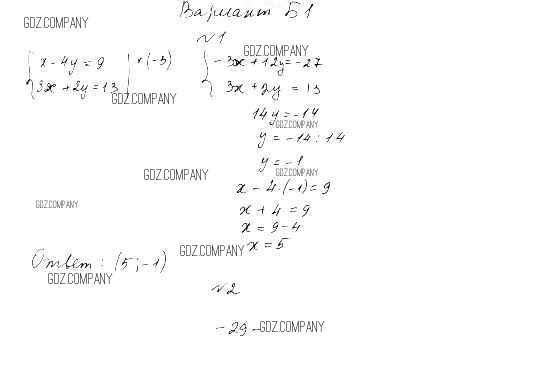 Вариант Б1
GDZ.COMPANY
№1
GDZ.COMPANY
x - 4y = 9 | • (-3)
3x + 2y = 13
GDZ.COMPANY
-3x + 12y = -27
3x + 2y = 13
14y = -14
GDZ.COMPANY
y = -14 : 14
y = -1
GDZ.COMPANY
GDZ.COMPANY
x - 4·(-1) = 9
GDZ.COMPANY
x + 4 = 9
x = 9 - 4
GDZ.COMPANY
x = 5
Ответ: (5; -1)
GDZ.COMPANY
№2
-29 -
GDZ.COMPANY